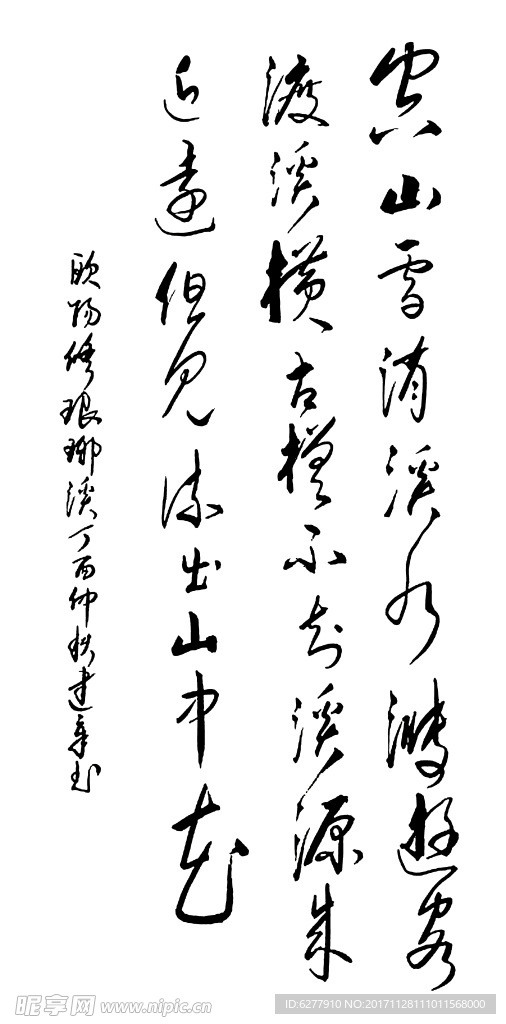 空山雪消溪水漲遊客
渡溪横古槎不知溪源来
近遠但見流出山中花
欧阳修琅琊溪丁酉仲秋建章书
昵享网 www.nipic.cn
ID:6277910 NO:20171128111011568000